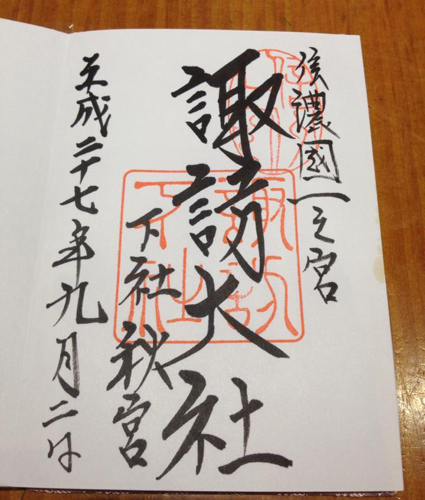 信濃國一之宮
諏訪大社
下社秋宮
平成二十七年九月二日